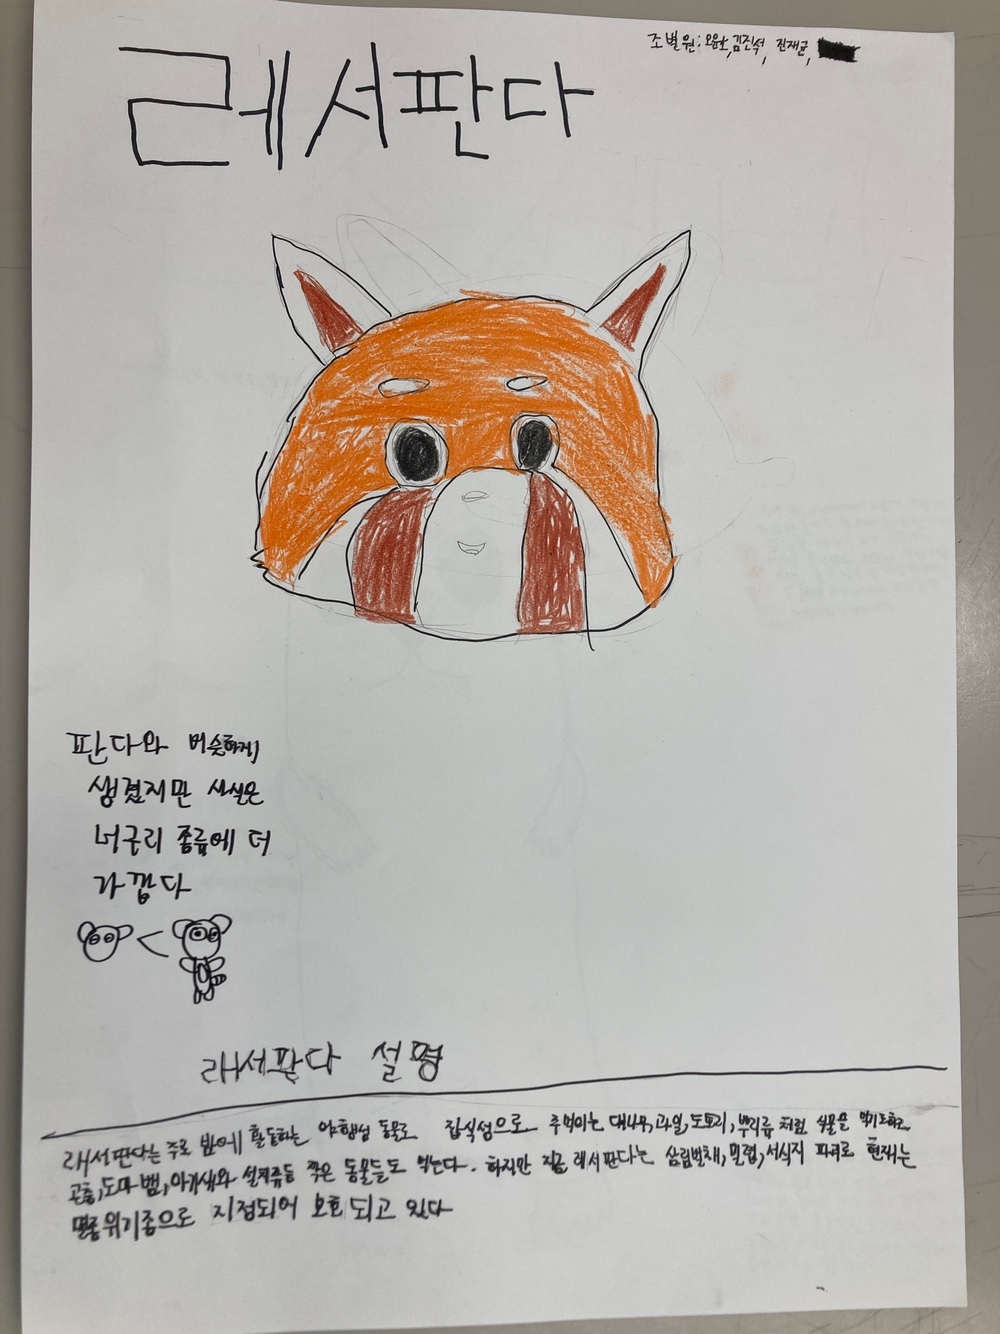 조별원: 오윤호, 김진석, 진재균,
레서판다
판다와 비슷하게
생겼지만 사실은
너구리 종류에 더
가깝다
래서판다 설명
래서판다는 주로 밤에 활동하는 야행성 동물로 잡식성으로 주먹이는 대나무,과일,도토리,뿌리류 처럼 식물을 먹기도하고
곤충,도마뱀,아기새와 설치류등 작은 동물들도 먹는다. 하지만 지금 레서판다는 삼림벌채,밀렵,서식지 파괴로 현재는
멸종위기종으로 지정되어 보호되고 있다